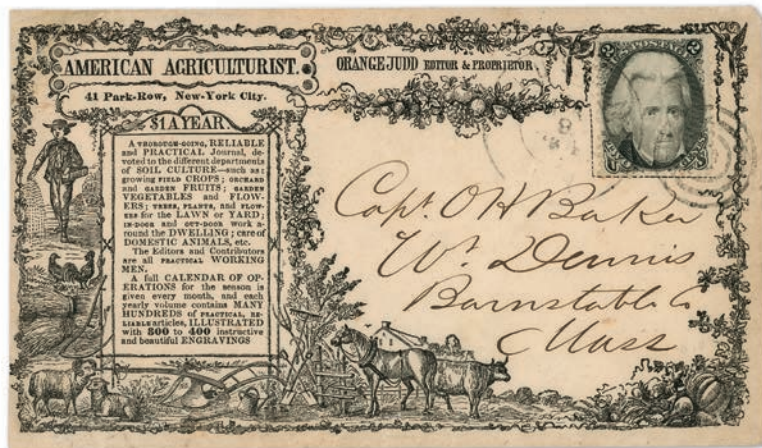 AMERICAN AGRICULTURIST.
ORANGE JUDD EDITOR & PROPRIETOR
41 Park-Row, New-York City.
$1 A YEAR
A THOROUGH-GOING, RELIABLE
and PRACTICAL Journal, de-
voted to the different departments
of SOIL CULTURE—such as:
growing FIELD CROPS; ORCHARD
and GARDEN FRUITS; GARDEN
VEGETABLES and FLOW-
ERS; TREES, PLANTS, and FLOW-
ERS for the LAWN or YARD;
IN-DOOR and OUT-DOOR work a-
round the DWELLING; care of
DOMESTIC ANIMALS, etc.
The Editors and Contributors
are all PRACTICAL WORKING
MEN.
A full CALENDAR OF OP-
ERATIONS for the season is
given every month, and each
yearly volume contains MANY
HUNDREDS of PRACTICAL, RE-
LIABLE articles, ILLUSTRATED
with 300 to 400 instructive
and beautiful ENGRAVINGS
Capt. O H Baker
W. Dennis
Barnstable Co
Mass